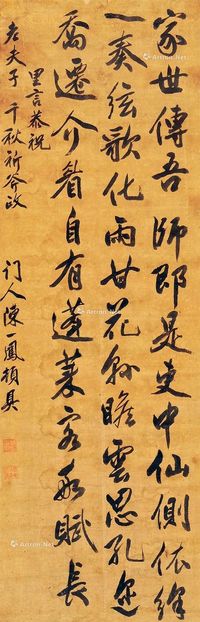 家世傳吾師即是吏中仙側依絳
一奏弦歌化雨甘花縣瞻雲思孔邇
喬遷介自有蓬萊客賦長
里言恭祝
老夫子千秋祈斧政
门人陳鳳具
Artron.Net